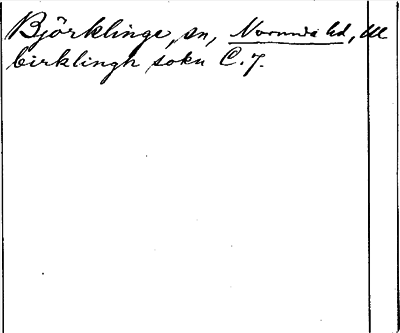 Björklinge, sn, Norunda hd, Ul
birklingh sokn C. 7.